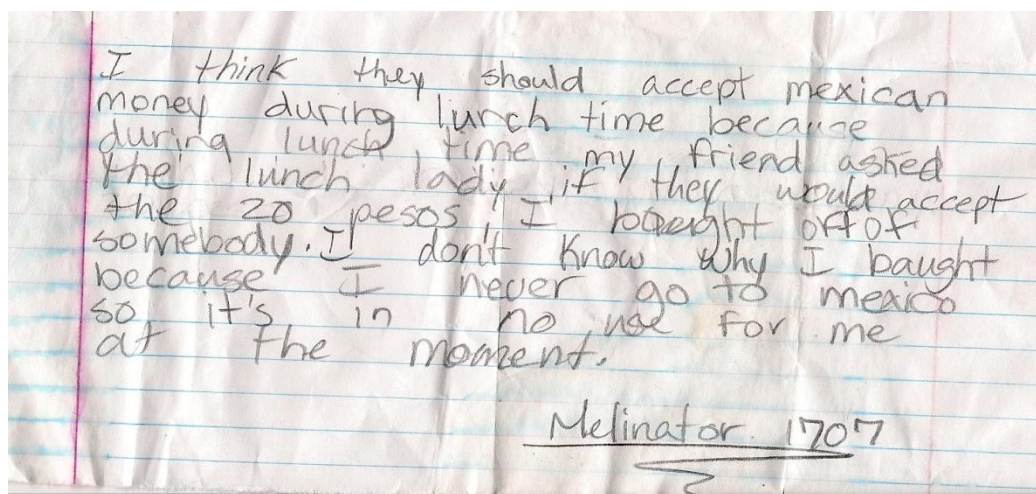 I think they should accept mexican
money during lunch time because
during lunch time my friend asked
the lunch lady if they would accept
the 20 pesos I bought off of
somebody. I don't know why I baught
because I never go to mexico
so it's in no use for me
at the moment.
Melinator 1707